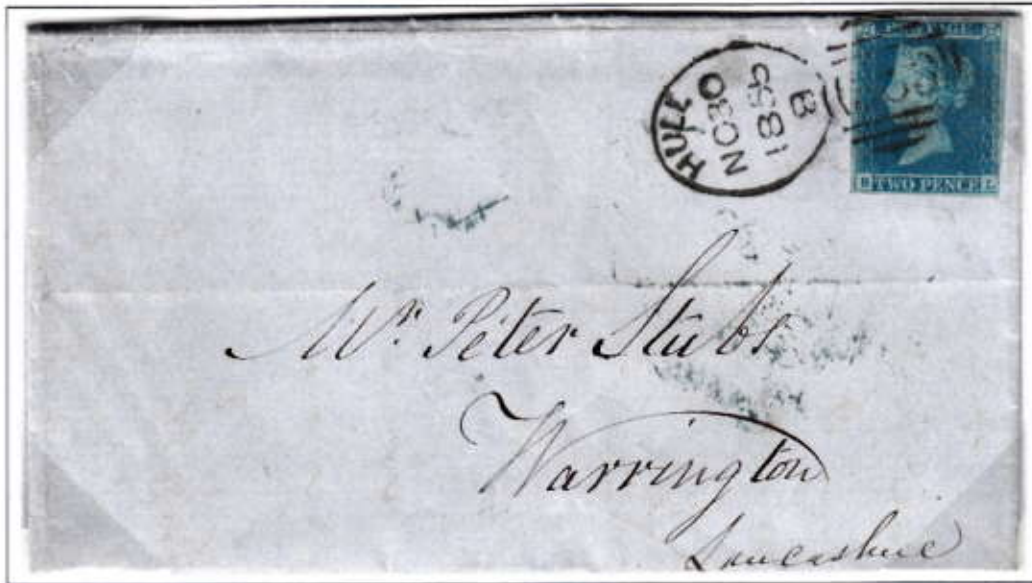 HULL
B
POSTAGE
TWO PENCE
Mr. Peter Stubs
Warrington
Lancashire